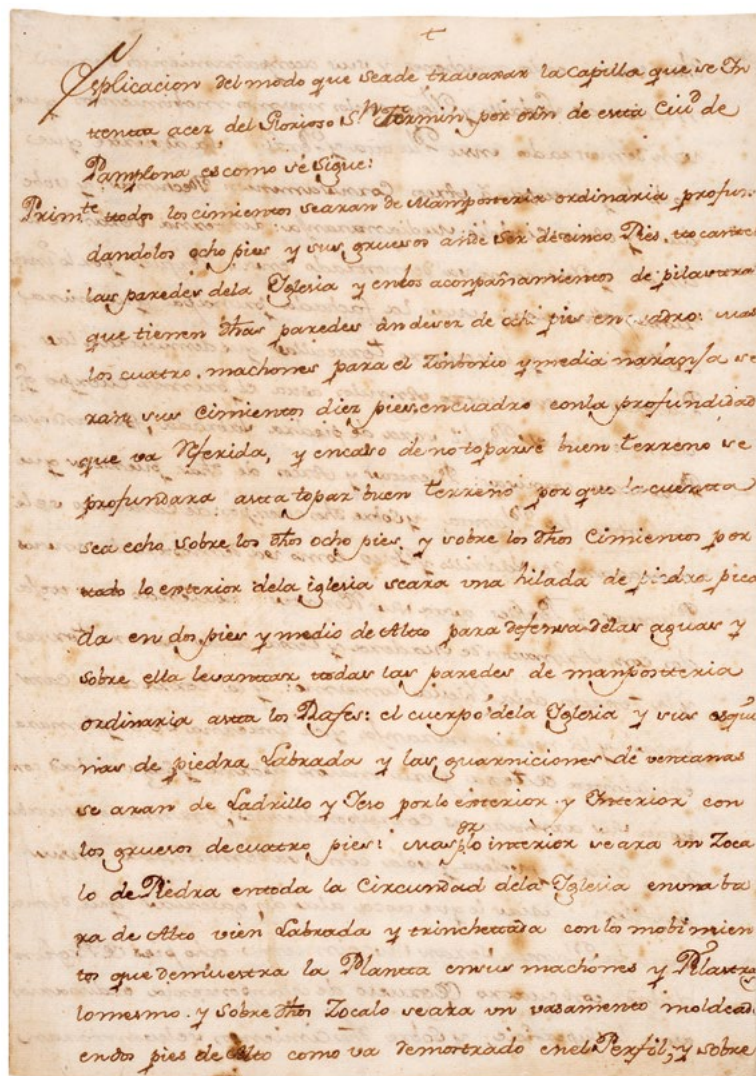 +
Esplicacion del modo que seade travaxar la capilla que se In
tentta acer del Glorioso Sn Fermin por orn de esta Ciud de
Pamplona es como se sigue:
Primte todos los cimientos se aran de Mamposteria ordinaria profun
dandolos ocho pies y sus gruesos ande ser de cinco Pies, tocante
las paredes dela Yglesia y enlos aconpañamientos de pilastras
que tienen dhas paredes an deser de ocho pies en cuadro: mas
los cuatro machones para el Zinborio y media naranja se
ran sus cimientos diez pies encuadro conla profundidad
que va Referida, y encaso de no toparse buen terreno se
profundara asta topar buen terreno por que la cuenta
sea echo sobre los dhos ocho pies, y sobre los dhos Cimientos por
todo lo exterior dela iglesia seara una hilada de piedra pica
da en dos pies y medio de Alto para defensa delas aguas y
sobre ella levanttar todas las paredes de manpostteria
ordinaria asta los Rafes: el cuerpo dela Yglesia y sus esqui
nas de piedra Labrada y las guarniciones de ventanas
se aran de Ladrillo y Ieso por lo exterior y Interior con
los gruesos de cuatro pies: mas por lo interior se ara un Zoca
lo de Piedra entoda la Circundad dela Yglesia enuna ba
ra de Alto vien Labrada y trinchettada con los mobimien
tos que demuestra la Plantta ensus machones y Pilastras
lomesmo. y Sobre dho Zocalo seara un vasamento moldeado
endos pies de Alto como va demostrado enel Perfil; y sobre